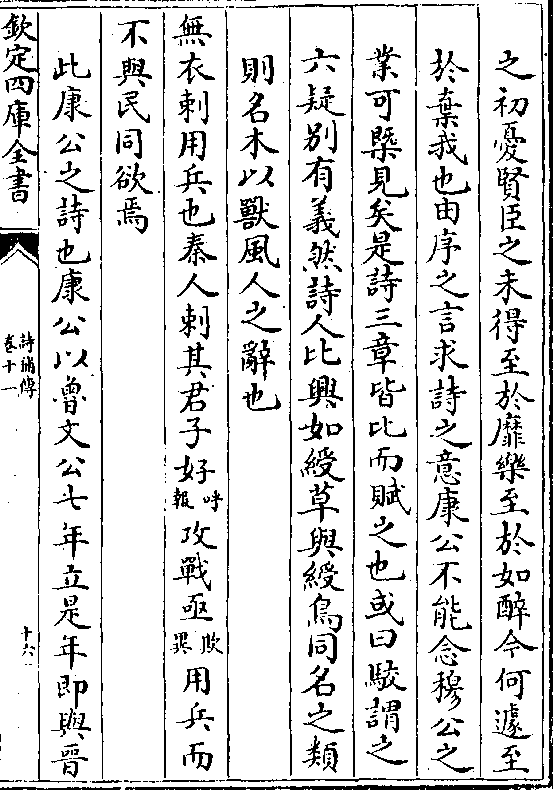 之初憂賢臣之未得至於靡樂至於如醉今何遽至
於棄我也由序之言求詩之意康公不能念穆公之
業可槩見矣是詩三章皆比而賦之也或曰駮謂之
六疑别有義然詩人比興如綬草與綬鳥同名之類
則名木以獸風人之辭也
無衣刺用兵也秦人刺其君子好呼報攻戰亟欺兾用兵而
不與民同欲焉
此康公之詩也康公以魯文公七年立是年即與晉
欽定四庫全書
詩補傳
卷十一
十六